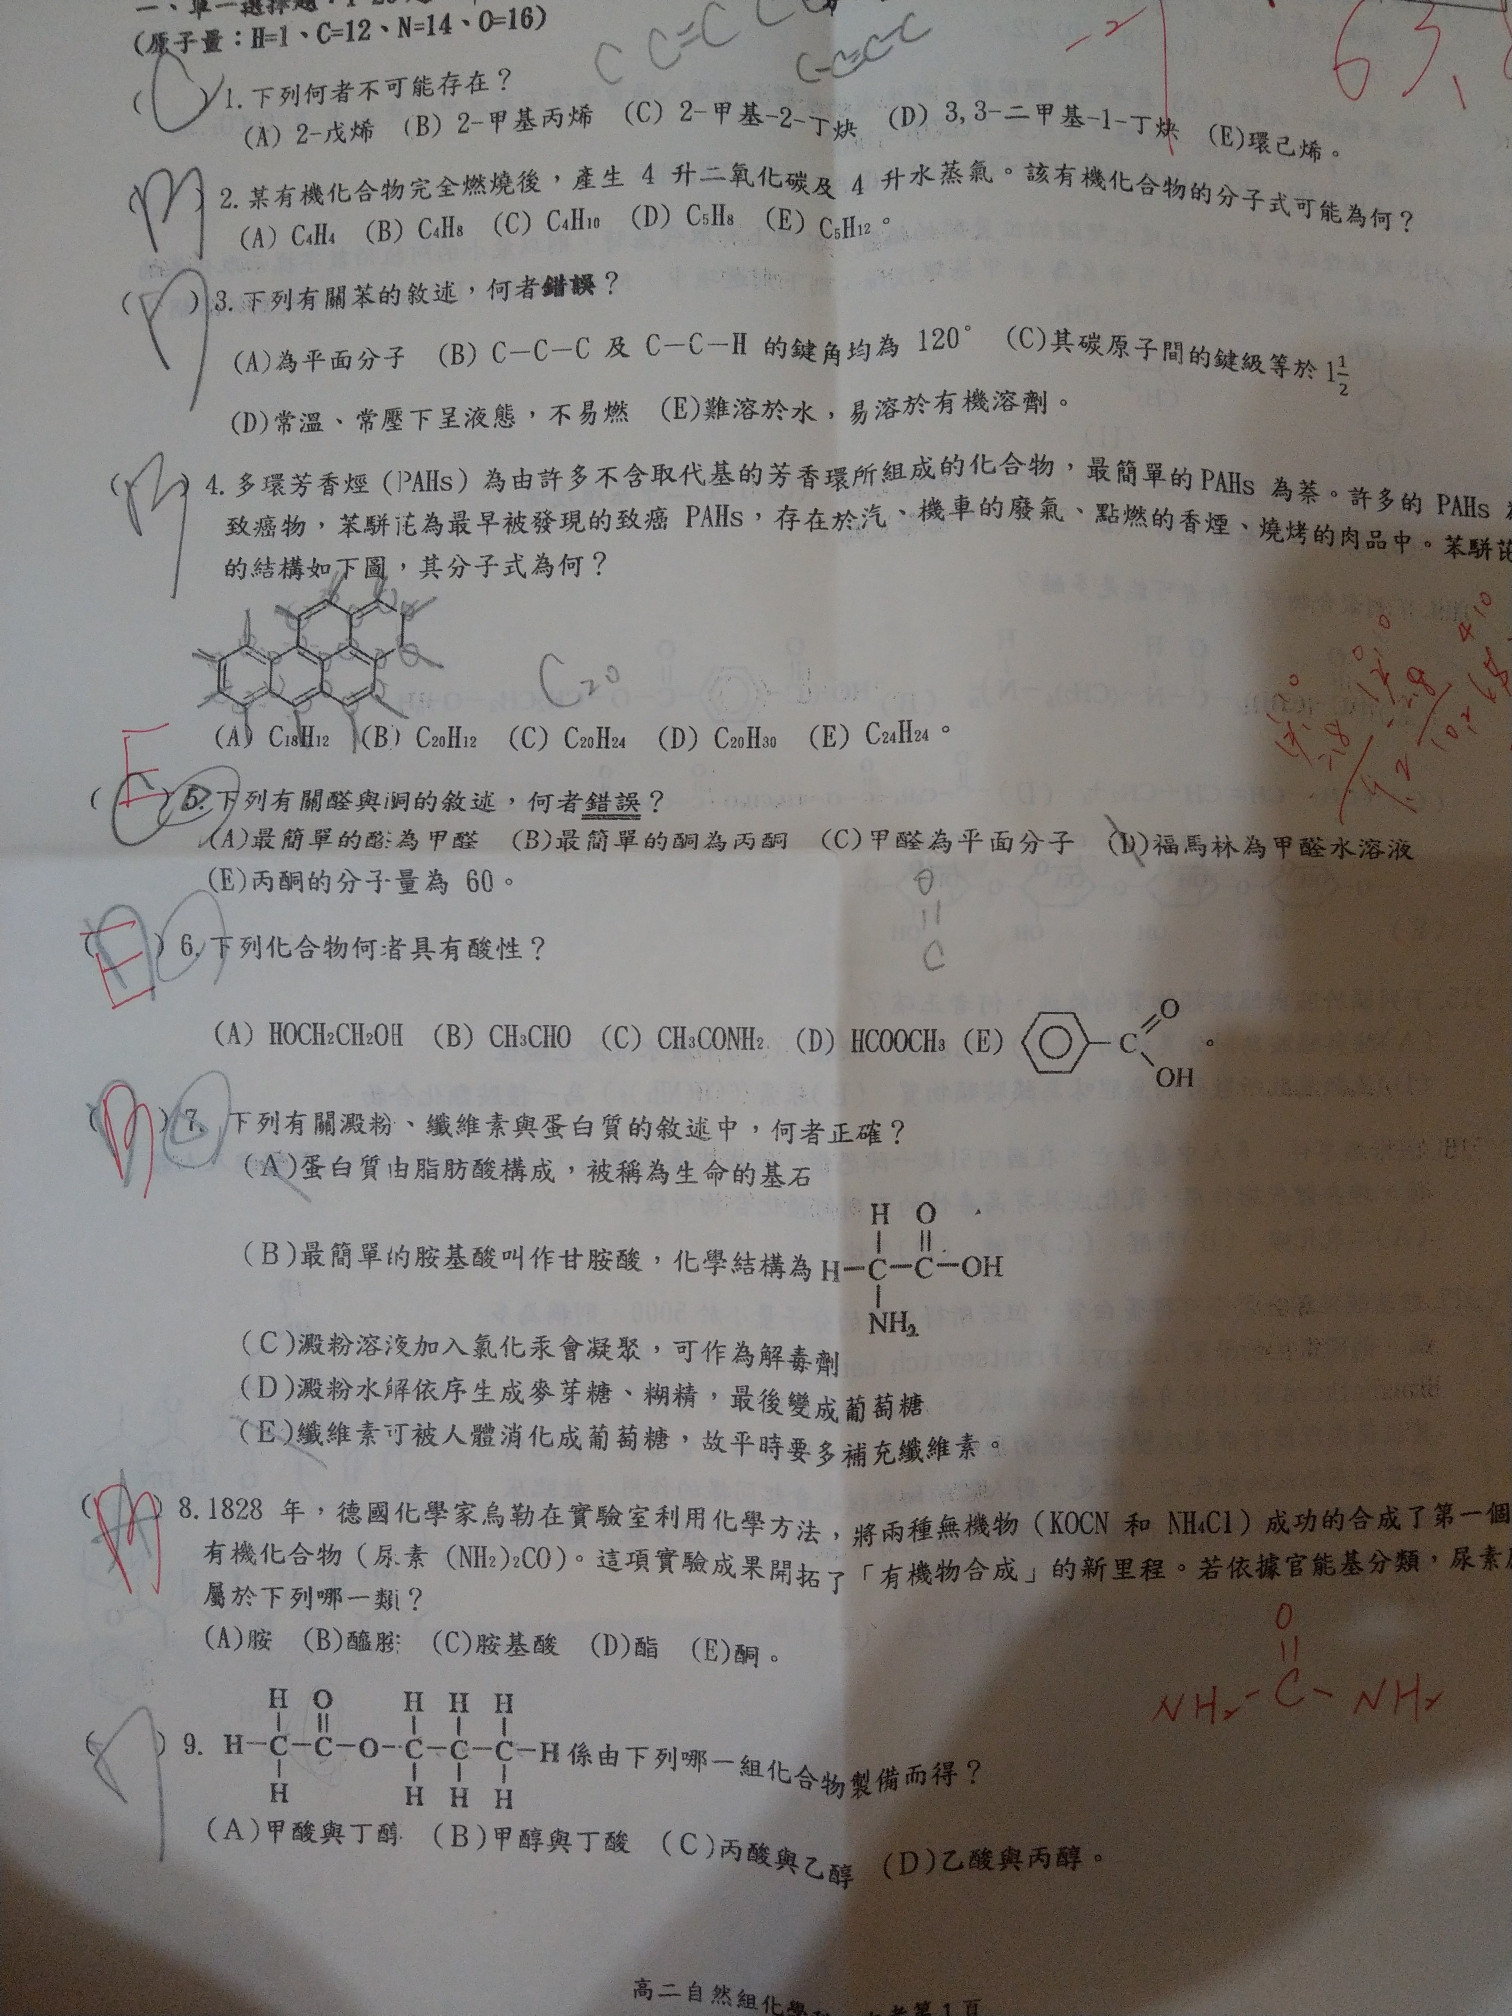 (原子量：H=1、C=12、N=14、O=16)
C C=C C
C-C=C-C
-2
63.
(C) 1.下列何者不可能存在？
(A) 2-戊烯 (B) 2-甲基丙烯 (C) 2-甲基-2-丁炔 (D) 3,3-二甲基-1-丁炔 (E)環己烯。
2.某有機化合物完全燃燒後，產生 4 升二氧化碳及 4 升水蒸氣。該有機化合物的分子式可能為何？
(A) C4H4 (B) C4H8 (C) C4H10 (D) C5H8 (E) C5H12。
( ) 3.下列有關苯的敘述，何者錯誤？
(A)為平面分子 (B) C－C－C 及 C－C－H 的鍵角均為 120° (C)其碳原子間的鍵級等於 1½
(D)常溫、常壓下呈液態，不易燃 (E)難溶於水，易溶於有機溶劑。
( ) 4.多環芳香烴(PAHs)為由許多不含取代基的芳香環所組成的化合物，最簡單的PAHs 為萘。許多的 PAHs
致癌物，苯駢芘為最早被發現的致癌 PAHs，存在於汽、機車的廢氣、點燃的香煙、燒烤的肉品中。苯駢芘
的結構如下圖，其分子式為何？
C20
(A) C18H12 (B) C20H12 (C) C20H24 (D) C20H30 (E) C24H24。
E
(C) 5.下列有關醛與酮的敘述，何者錯誤？
(A)最簡單的醛為甲醛 (B)最簡單的酮為丙酮 (C)甲醛為平面分子 (D)福馬林為甲醛水溶液
(E)丙酮的分子量為 60。
O
||
C
( E ) 6.下列化合物何者具有酸性？
(A) HOCH2CH2OH (B) CH3CHO (C) CH3CONH2 (D) HCOOCH3 (E) C O OH 。
( ) 7. 下列有關澱粉、纖維素與蛋白質的敘述中，何者正確？
(A)蛋白質由脂肪酸構成，被稱為生命的基石
H O
(B)最簡單的胺基酸叫作甘胺酸，化學結構為 H－C－C－OH
NH2
(C)澱粉溶液加入氯化汞會凝聚，可作為解毒劑
(D)澱粉水解依序生成麥芽糖、糊精，最後變成葡萄糖
(E)纖維素可被人體消化成葡萄糖，故平時要多補充纖維素。
( ) 8.1828 年，德國化學家烏勒在實驗室利用化學方法，將兩種無機物(KOCN 和 NH4Cl)成功的合成了第一個
有機化合物(尿素 (NH2)2CO)。這項實驗成果開拓了「有機物合成」的新里程。若依據官能基分類，尿素
屬於下列哪一類？
(A)胺 (B)醯胺 (C)胺基酸 (D)酯 (E)酮。
O
||
NH2-C-NH2
H O H H H
( ) 9. H－C－C－O－C－C－C－H係由下列哪一組化合物製備而得？
H H H H
(A)甲酸與丁醇 (B)甲醇與丁酸 (C)丙酸與乙醇 (D)乙酸與丙醇。
高二自然組化學
第1頁